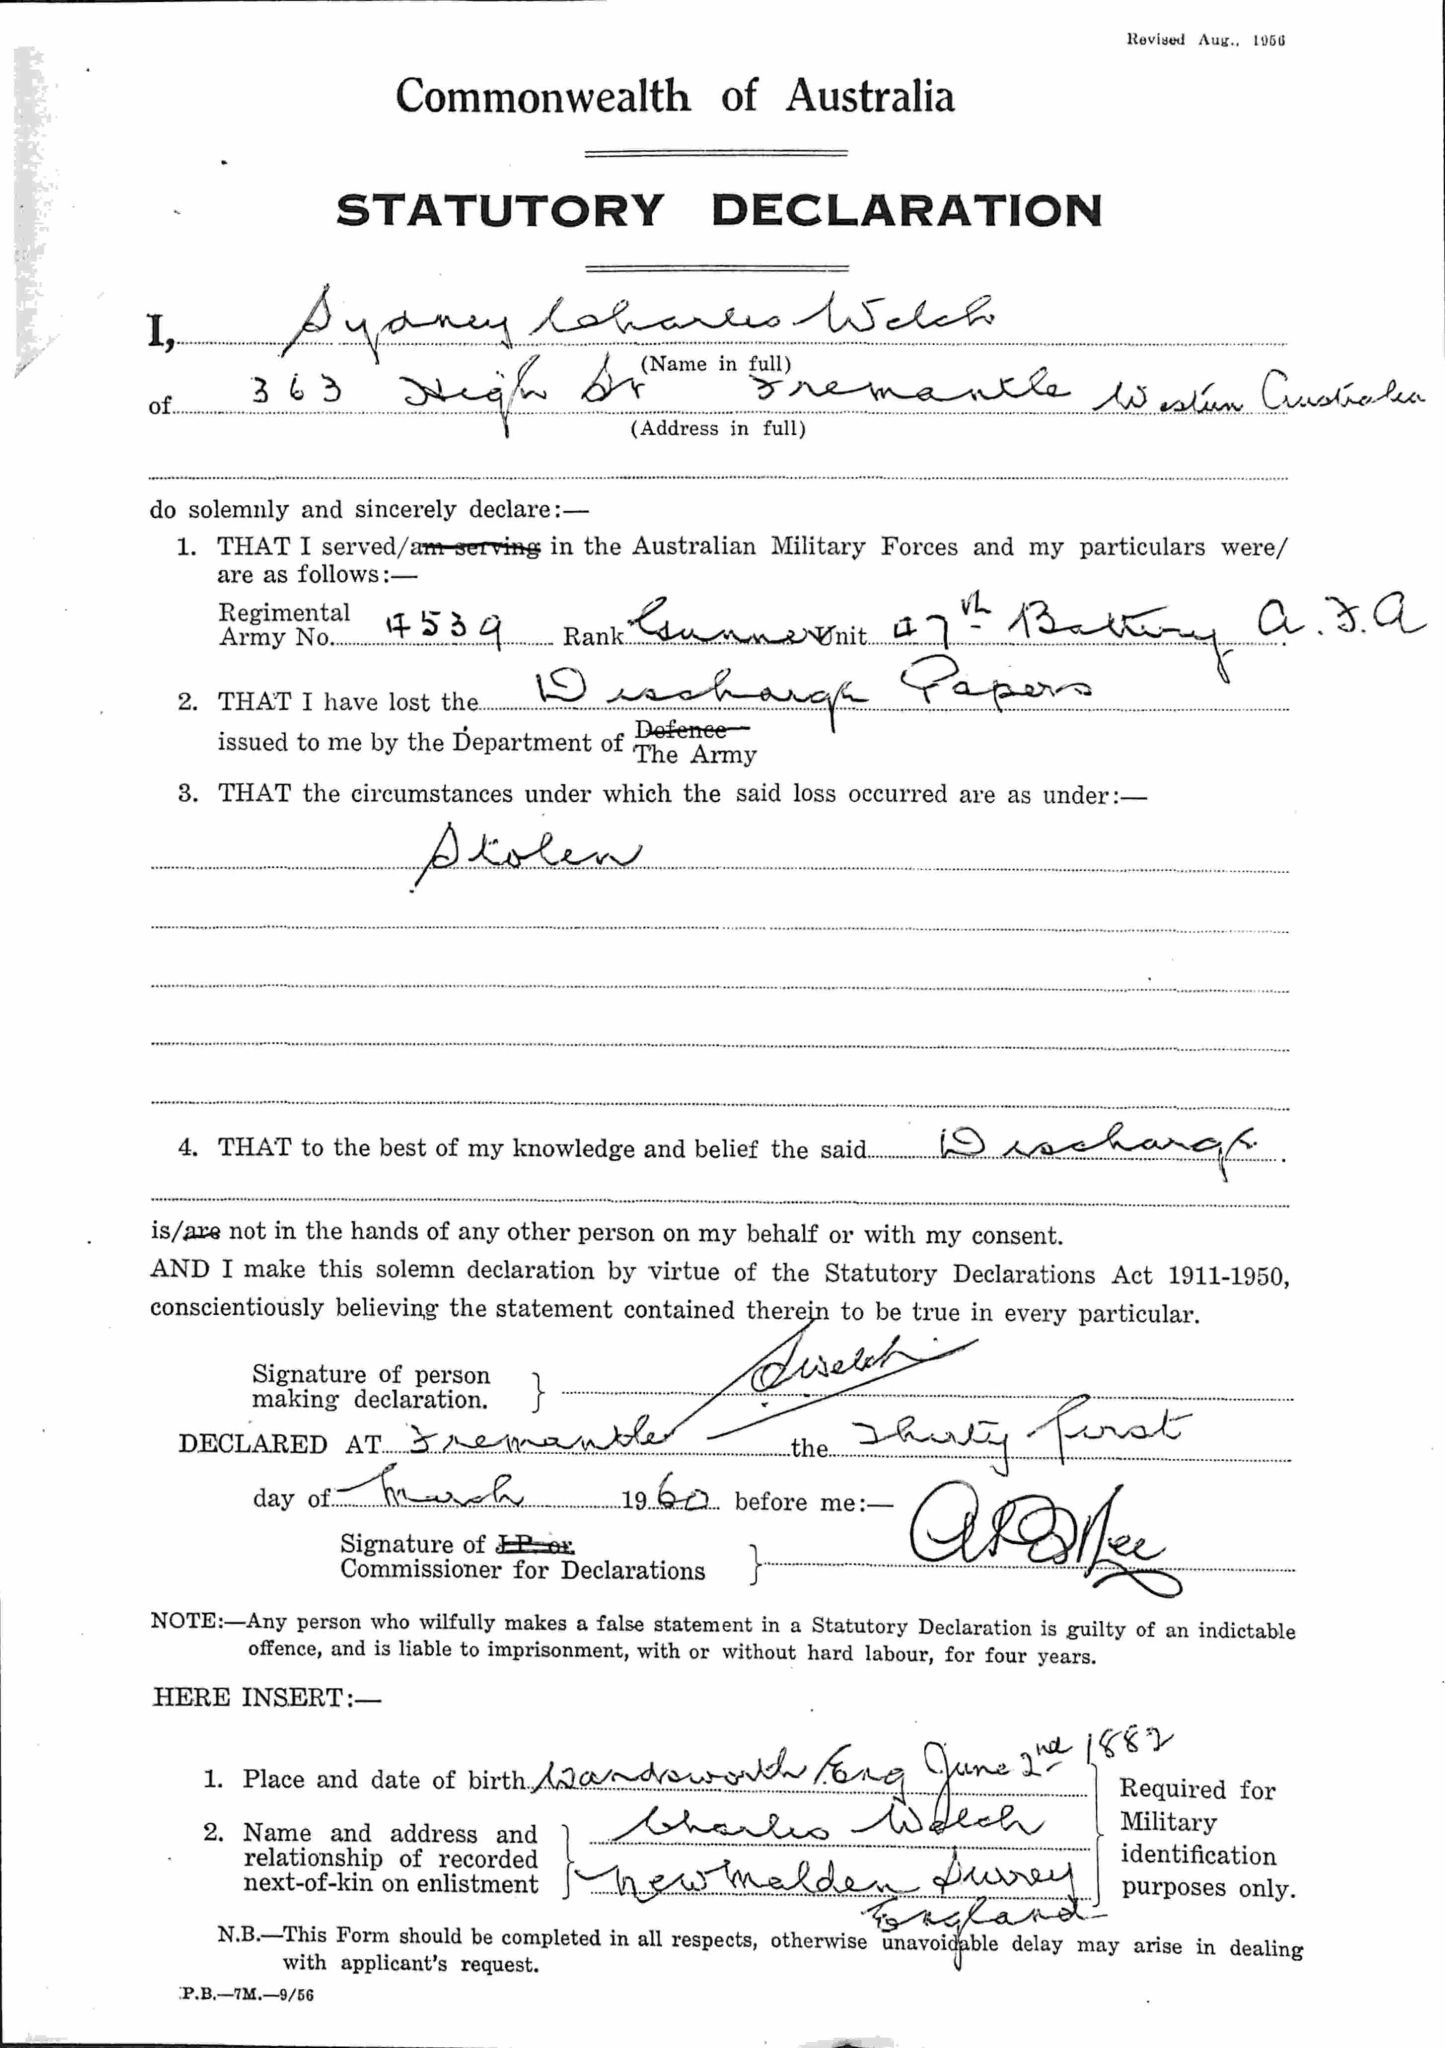 Revised Aug., 1956
Commonwealth of Australia
STATUTORY DECLARATION
I, Sydney Charles Welch
(Name in full)
of 363 High St Fremantle Western Australia
(Address in full)
do solemnly and sincerely declare:—
1. THAT I served/am serving in the Australian Military Forces and my particulars were/
are as follows:—
Regimental
Army No. 4539 Rank Gunner Unit 47th Battery A.F.A
2. THAT I have lost the Discharge Papers
issued to me by the Department of Defence
The Army
3. THAT the circumstances under which the said loss occurred are as under:—
Stolen
4. THAT to the best of my knowledge and belief the said Discharge.
is/are not in the hands of any other person on my behalf or with my consent.
AND I make this solemn declaration by virtue of the Statutory Declarations Act 1911-1950,
conscientiously believing the statement contained therein to be true in every particular.
Signature of person
making declaration. } SWelch
DECLARED AT Fremantle the Thirty first
day of March 1960 before me:—
Signature of J.P. or
Commissioner for Declarations }
NOTE:—Any person who wilfully makes a false statement in a Statutory Declaration is guilty of an indictable
offence, and is liable to imprisonment, with or without hard labour, for four years.
HERE INSERT:—
1. Place and date of birth Wandsworth Eng June 2nd 1882
2. Name and address and
relationship of recorded
next-of-kin on enlistment
Charles Welch
New Malden Surrey
England
Required for
Military
identification
purposes only.
N.B.—This Form should be completed in all respects, otherwise unavoidable delay may arise in dealing
with applicant's request.
P.B.—7M.—9/56